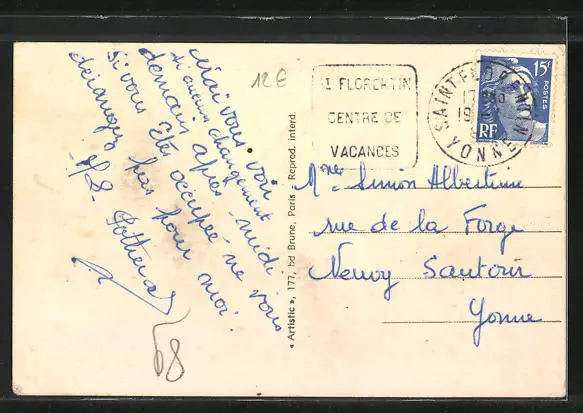 irai vous voir
si aucun changement
demain après-midi
Si vous êtes occupée ne vous
dérangez pas pour moi!
12€
68
« Artistic », 177, bd Brune, Paris - Reprod. interd.
ST FLORENTIN
CENTRE DE
VACANCES
SAINT FLORENTIN
YONNE
15F
POSTES
RF
Simon Albertine
rue de la Forge
Neuvy Sautour
Yonne